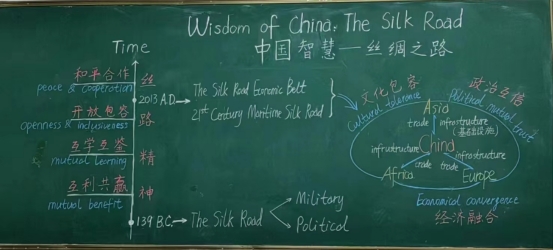 Wisdom of China: The Silk Road
中国智慧—丝绸之路
Time
和平合作
peace & cooperation
开放包容
openness & inclusiveness
互学互鉴
mutual learning
互利共赢
mutual benefit
丝
路
精
神
2013 A.D.
The Silk Road Economic Belt
21st Century Maritime Silk Road
139 B.C.
The Silk Road
Military
Political
文化包容
Cultural tolerance
政治互信
Political mutual trust
Asia
trade
infrastructure
(基础设施)
infrastructure
China
infrastructure
trade
trade
Africa
Europe
Economical convergence
经济融合